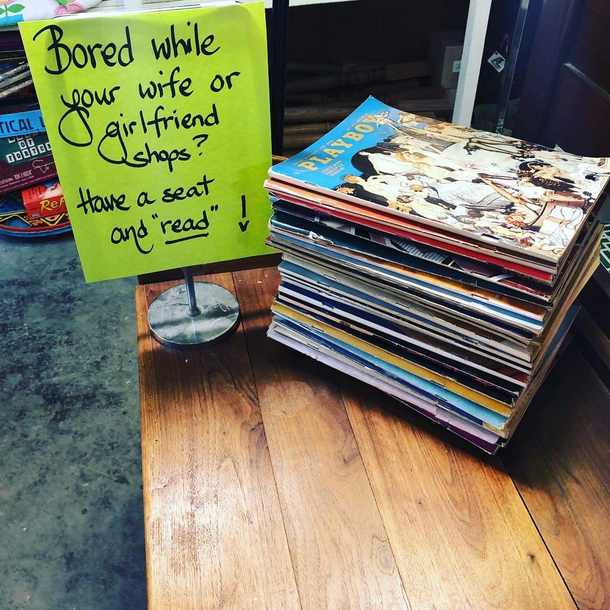 Bored while
your wife or
girlfriend
shops?
Have a seat
and "read" !
PLAYBOY
TICAL